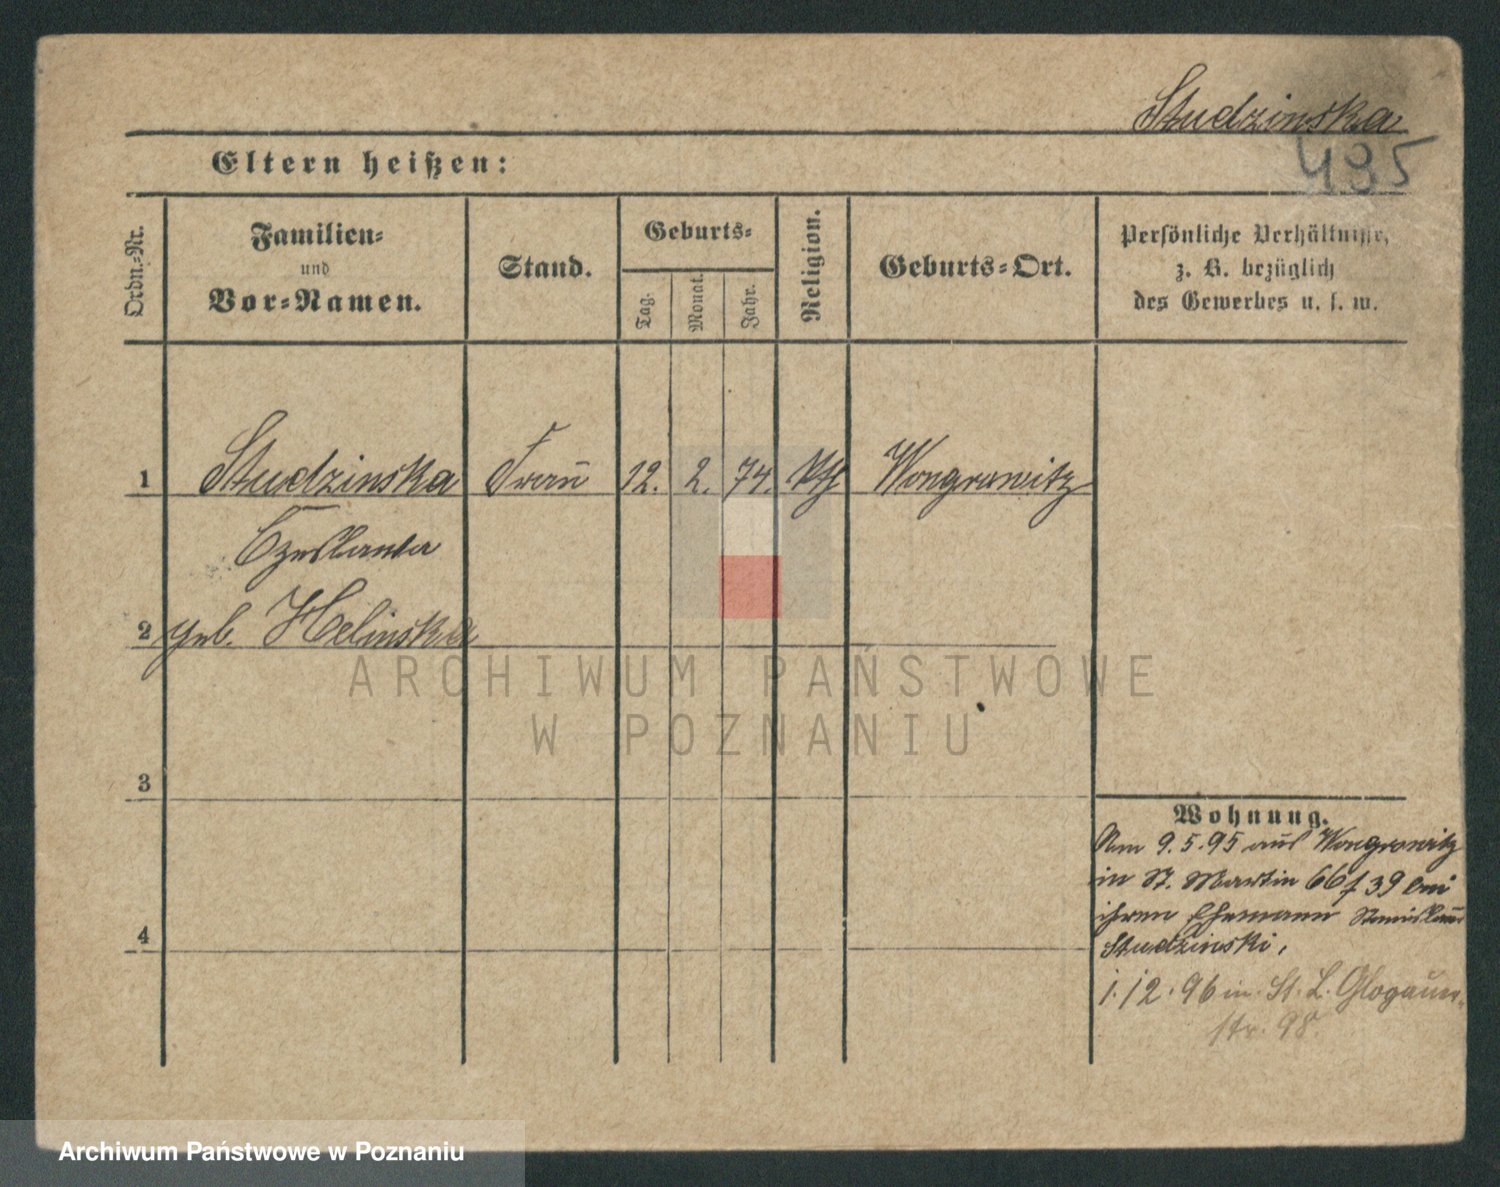 Studzinska
495
Eltern heißen:
Ordn.-Nr.
Familien-
und
Vor-Namen.
Stand.
Geburts-
Tag.
Monat.
Jahr.
Religion.
Geburts-Ort.
Persönliche Verhältnisse,
z. B. bezüglich
des Gewerbes u. s. w.
1 Studzinska Frau 12. 2. 74. kth Wongrowitz
Czeslawa
2 geb. Helinska
3
4
Wohnung.
Am 9.5.95 aus Wongrowitz
in St. Martin 66/ 39 bei
ihrem Ehemann Stanislaus
Studzinski.
1.12.96 in St. L. Glogauer-
str. 98.
ARCHIWUM PAŃSTWOWE
W POZNANIU
Archiwum Państwowe w Poznaniu